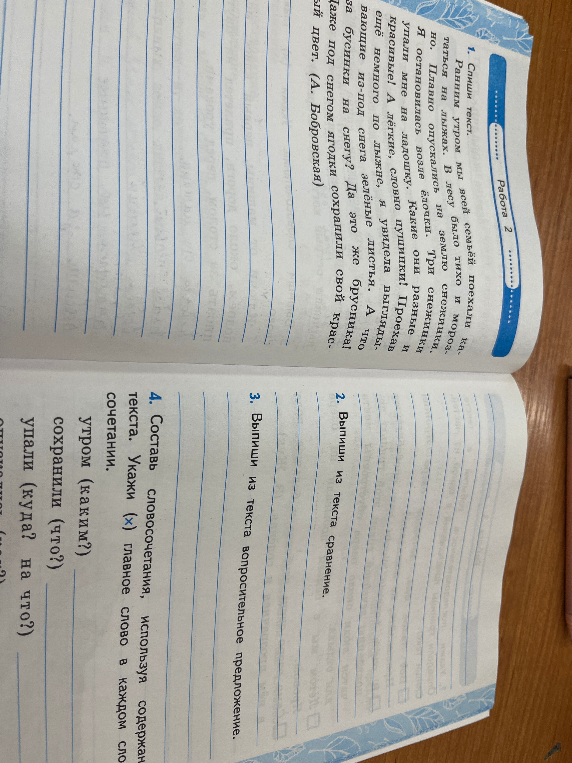 Работа 2
1. Спиши текст.
Ранним утром мы всей семьёй поехали ка-
таться на лыжах. В лесу было тихо и мороз-
но. Плавно опускались на землю снежинки.
Я остановилась возле ёлочки. Три снежинки
упали мне на ладошку. Какие они разные и
красивые! А лёгкие, словно пушинки! Проехав
ещё немного по лыжне, я увидела выгляды-
вающие из-под снега зелёные листья. А что
за бусинки на снегу? Да это же брусника!
Даже под снегом ягодки сохранили свой крас-
ый цвет. (А. Бобровская)
2. Выпиши из текста сравнение.
3. Выпиши из текста вопросительное предложение.
4. Составь словосочетания, используя содержан
текста. Укажи (х) главное слово в каждом сло
сочетании.
утром (каким?)
сохранили (что?)
упали (куда? на что?)